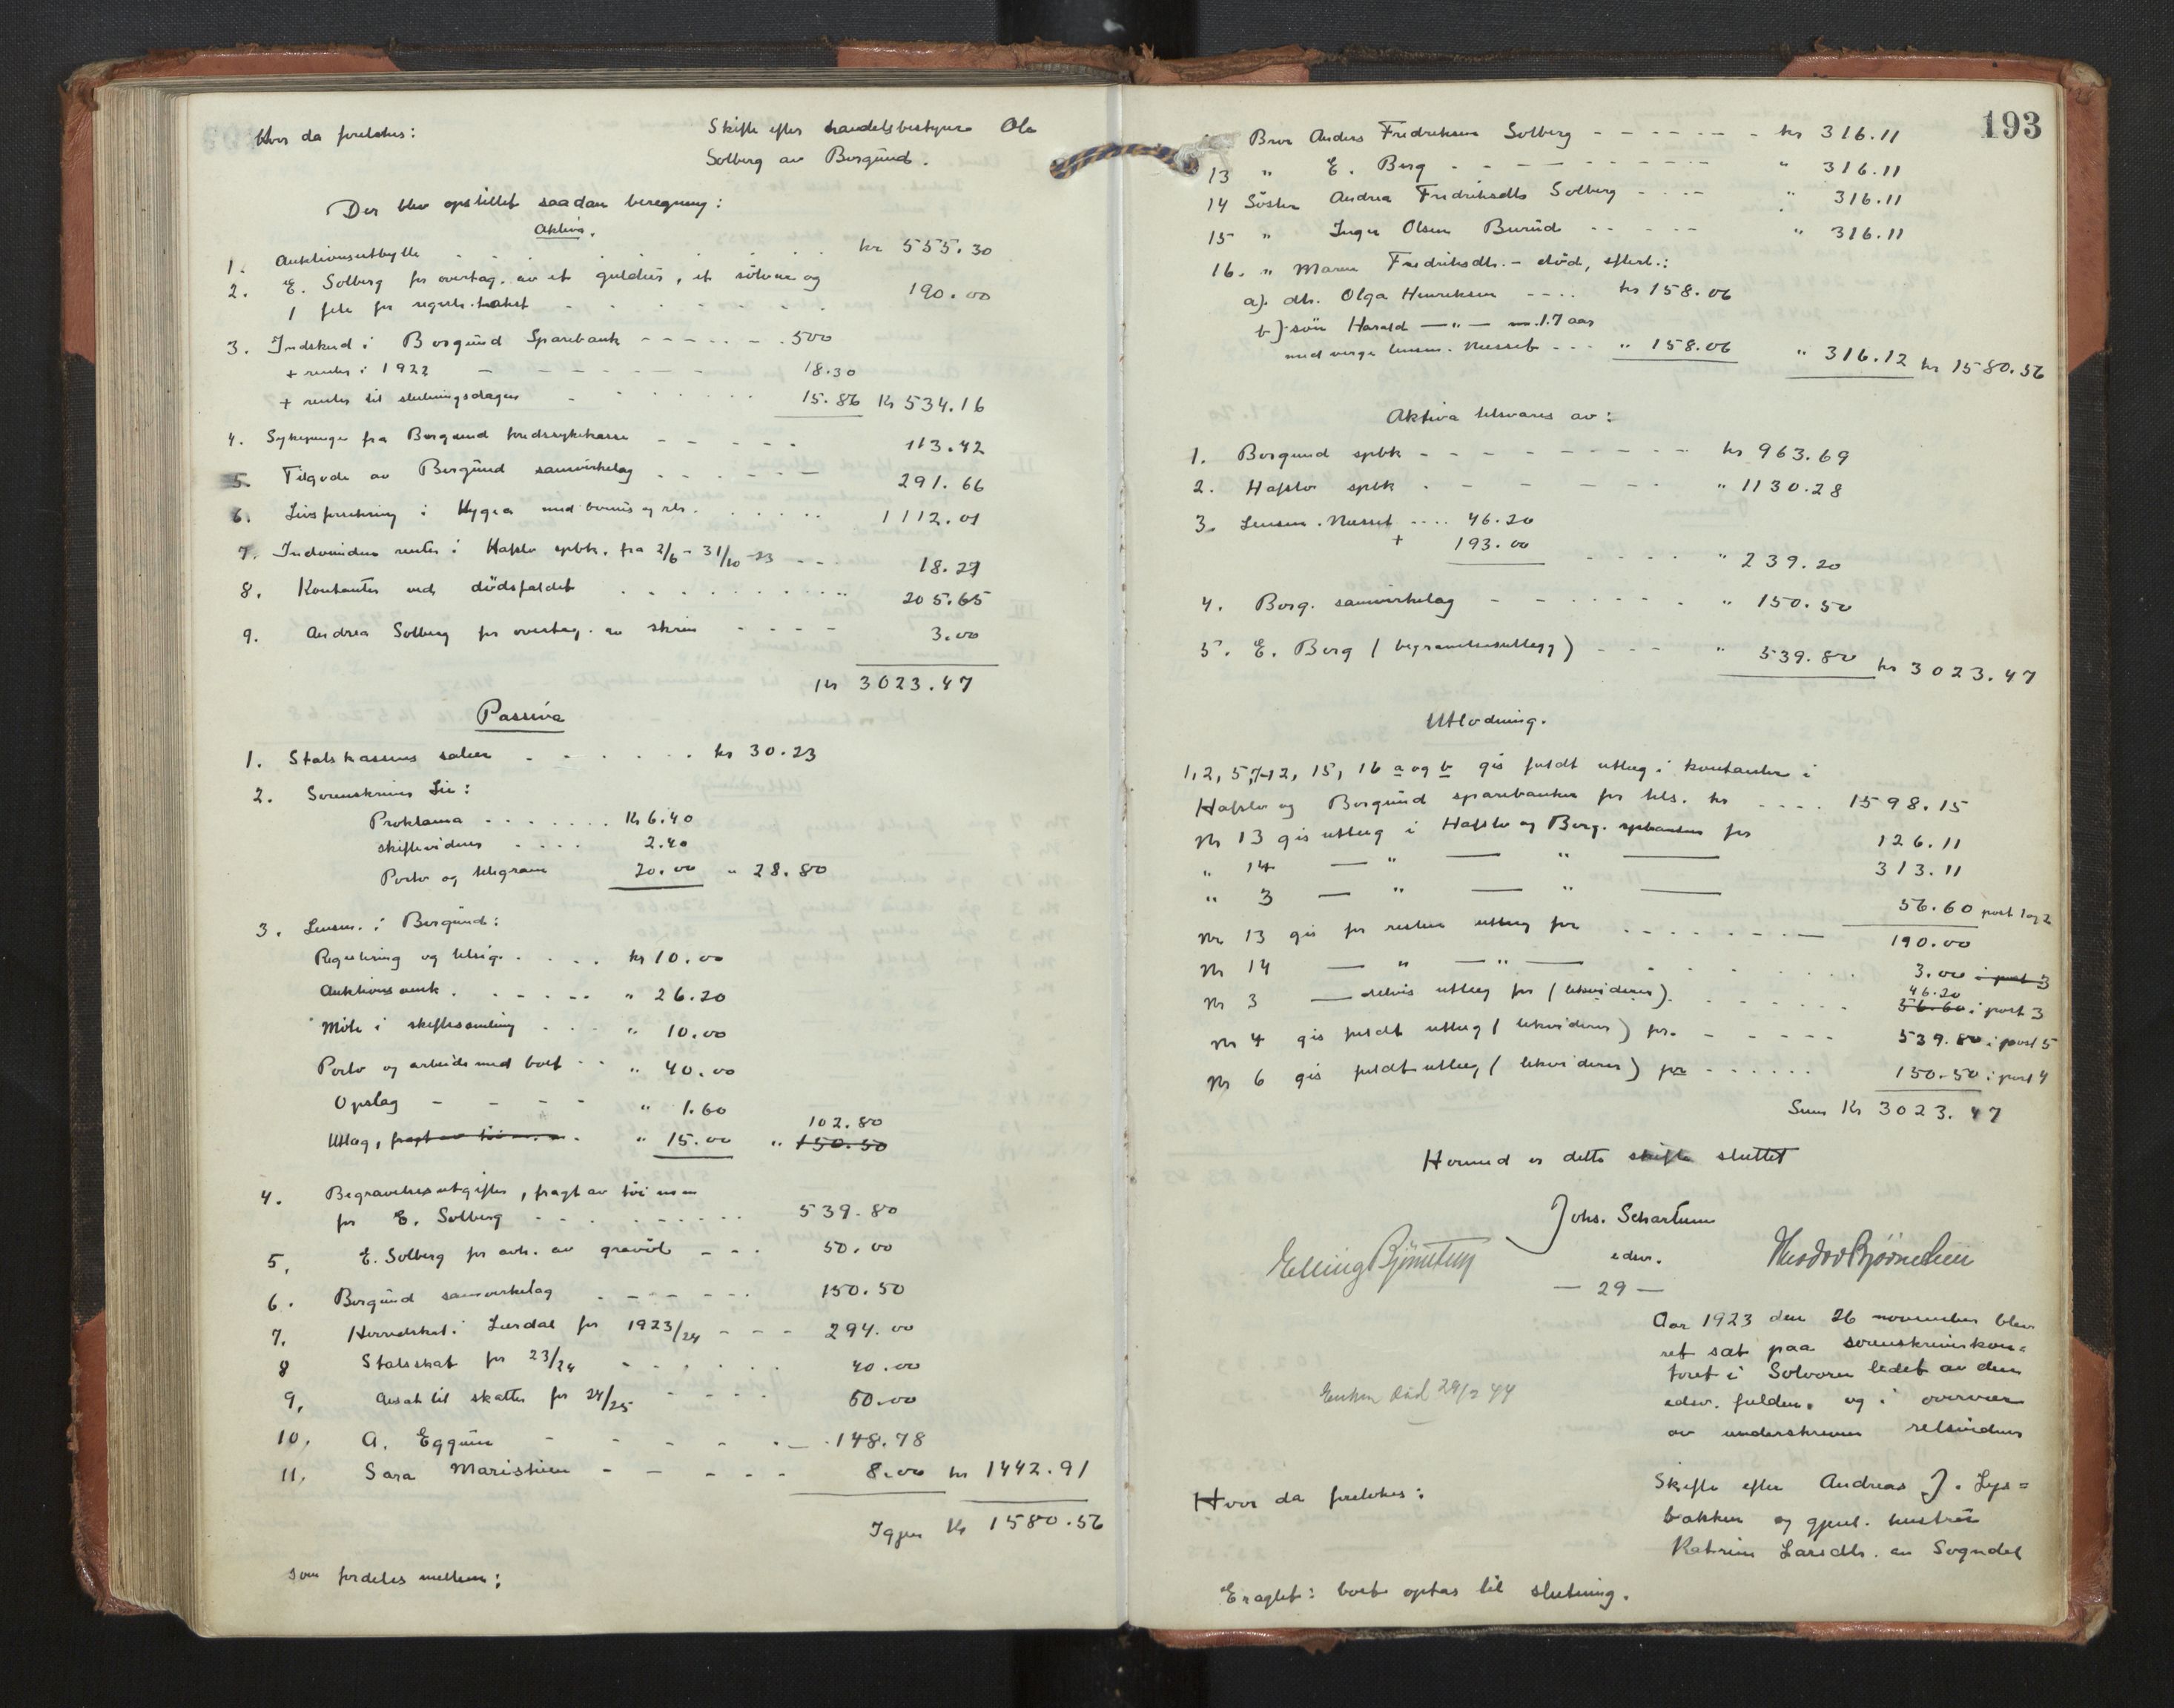 Hvor da foretokes:
Skifte efter handelsbestyrer Ole
Solberg av Borgund.
Der blev opstillet saadan beregning:
Aktiva.
1. Auktionsutbytte . . . . . . kr 555.30
2. E. Solberg for overtag. av et guldur, et sölvur og
1 fele for regstr. takst - - - - 190.00
3. Indskud i Borgund Sparebank - - - - - . 500
+ renter i 1922 - - - - - - 18.30
+ renter til slutningsdagen - . . . . . 15.86 Kr 534.16
4. Sykepenge fra Borgund kredssykekasse - - - - - 113.42
5. Tilgode av Borgund samvirkelag - - - - - 291.66
6. Livsforsikring i Hygea med bonus og rtr. . . . . . 1112.01
7. Indvundne renter i Hafslo spbk. fra 2/6 - 31/10 -23 - - . 18.27
8. Kontanter ved dödsfaldet . . . . . . . . . " 205.65
9. Andrea Solberg for overtag. av skrin - - - - 3.00
Kr 3023.47
Passiva
1. Statskassens saker - - - . . . kr 30.23
2. Sorenskriver Lie:
Proklama . . . . . . . Kr 6.40
skiftevidner . . . . 2.40
Porto og telegram 20.00 " 28.80
3. Lensm. i Borgund:
Registrering og tilsig. . . . . kr 10.00
Auktions omk. . - - - - - " 26.20
Möte i skiftesamling . . . " 10.00
Porto og arbeide med boet . . " 40.00
Opslag - - - - " 1.60
102.80
Utlag, fragt av töi m.m. . " 15.00 " 150.50
4. Begravelsesutgifter, fragt av töi m m
for E. Solberg - - . . . . . . . . 539.80
5. E. Solberg for avh. av gravöl - - . 50.00
6. Borgund samvirkelag . - - - - - . 150.50
7. Herredskat i Lærdal for 1923/24 - - - 294.00
8 Statsskat for 23/24 . . . . . . 40.00
9. Avsat til skatter for 24/25 - - - - 60.00
10. A. Eggum - - - - - . - . 148.78
11. Sara Maristuen - - - - - 8.00 kr 1442.91
Igjen Kr 1580.56
som fordeles mellem:
193
Bror Anders Fredriksen Solberg - - - - - - - kr 316.11
13 " E. Berg - - - - - - - - - " 316.11
14 Söster Andrea Fredriksdtr Solberg - . . - " 316.11
15 " Inger Olsen Burud - - - - - " 316.11
16. " Maren Fredriksdtr. - död, efterl.:
a). dtr. Olga Henriksen - - - . kr 158.06
b) sön Harald — " — 17 aar
med verge lensm. Musset - - - " 158.06 " 316.12 kr 1580.56
Aktiva tilsvares av:
1. Borgund spbk - - - - - - - - - kr 963.69
2. Hafslo spbk . - - - - - - " 1130.28
3. Lensm. Musset . . . . 46.20
+ 193.00 - . . . - " 239.20
4. Borg. samvirkelag - - - . . . . . " 150.50
5. E. Berg (begravelsesutlegg) - - - - " 539.80 kr 3023.47
Utlodning.
1, 2, 5, 7-12, 15, 16 a og b gis fuldt utlæg i kontanter i
Hafslo og Borgund sparebanker for tils. kr . . . . 1598.15
Nr 13 gis utlæg i Hafslo og Borg. spbanker for 126.11
" 14 — " — " — 313.11
" 3 — " — " — 56.60 post 1 og 2
Nr 13 gis for resten utlæg for . . . . . . . — 190.00
Nr 14 — " — " — . . . . . . 3.00 i post 3
46.20
Nr 3 — delvis utlæg for (likviderer) . . . . . . . 56.60 i post 3
Nr 4 gis fuldt utlæg (likviderer) for. - - - - - 539.80 i post 5
Nr 6 gis fuldt utlæg (likviderer) for - . . . . . 150.50 i post 4
Sum Kr 3023.47
Hermed er dette skifte sluttet
Johs. Schartum
edsv.
Elling Björnetun
Theodor Bjørnetun
— 29 —
Aar 1923 den 26 november blev
ret sat paa sorenskriverkon=
toret i Solvorn ledet av den
edsv. fuldm. og i overvær
av underskrevne retsvidner
Enken död 29/3 44
Hvor da foretokes:
Skifte efter Andreas J. Lys=
bakken og gjenl. hustru
Katrine Larsdtr. av Sogndal
Eragtet: boet optas til slutning.